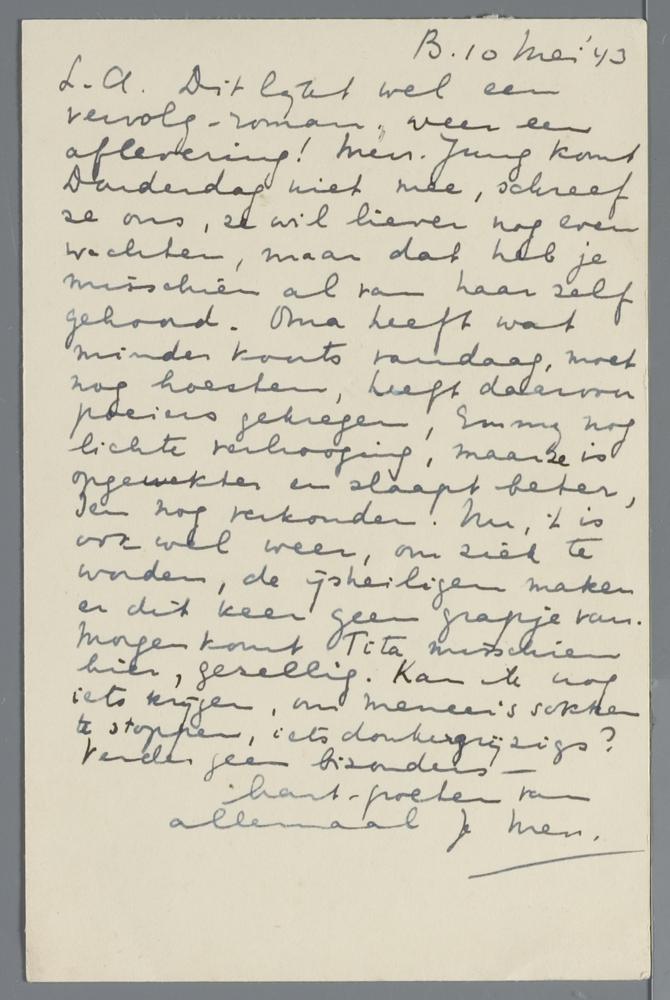 B. 10 Mei '43
L. A. Dit lijkt wel een
vervolg-roman, weer een
aflevering! Mevr. Jung komt
Donderdag niet mee, schreef
ze ons, ze wil liever nog even
wachten, maar dat heb je
misschien al van haar zelf
gehoord. Oma heeft wat
minder koorts vandaag, moet
nog hoesten, heeft daarvoor
poeiers gekregen, Emmy nog
lichte verhooging, maar ze is
opgewekter en slaapt beter,
Jen nog verkouden. Nu, 't is
ook wel weer, om ziek te
worden, de ijsheiligen maken
er dit keer geen grapje van.
Morgen komt Tita misschien
hier, gezellig. Kan ik nog
iets krijgen, om meneer's sokken
te stoppen, iets donkergrijzigs?
Verder geen bizonders —
hart-groeten van
allemaal Je Mevr.